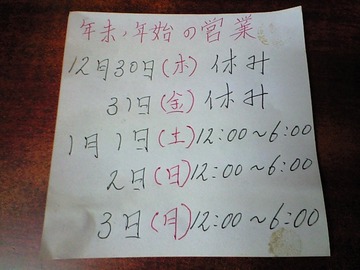 年末・年始の営業
12月30日(木) 休み
31日(金) 休み
1月1日(土) 12:00~6:00
2日(日) 12:00~6:00
3日(月) 12:00~6:00